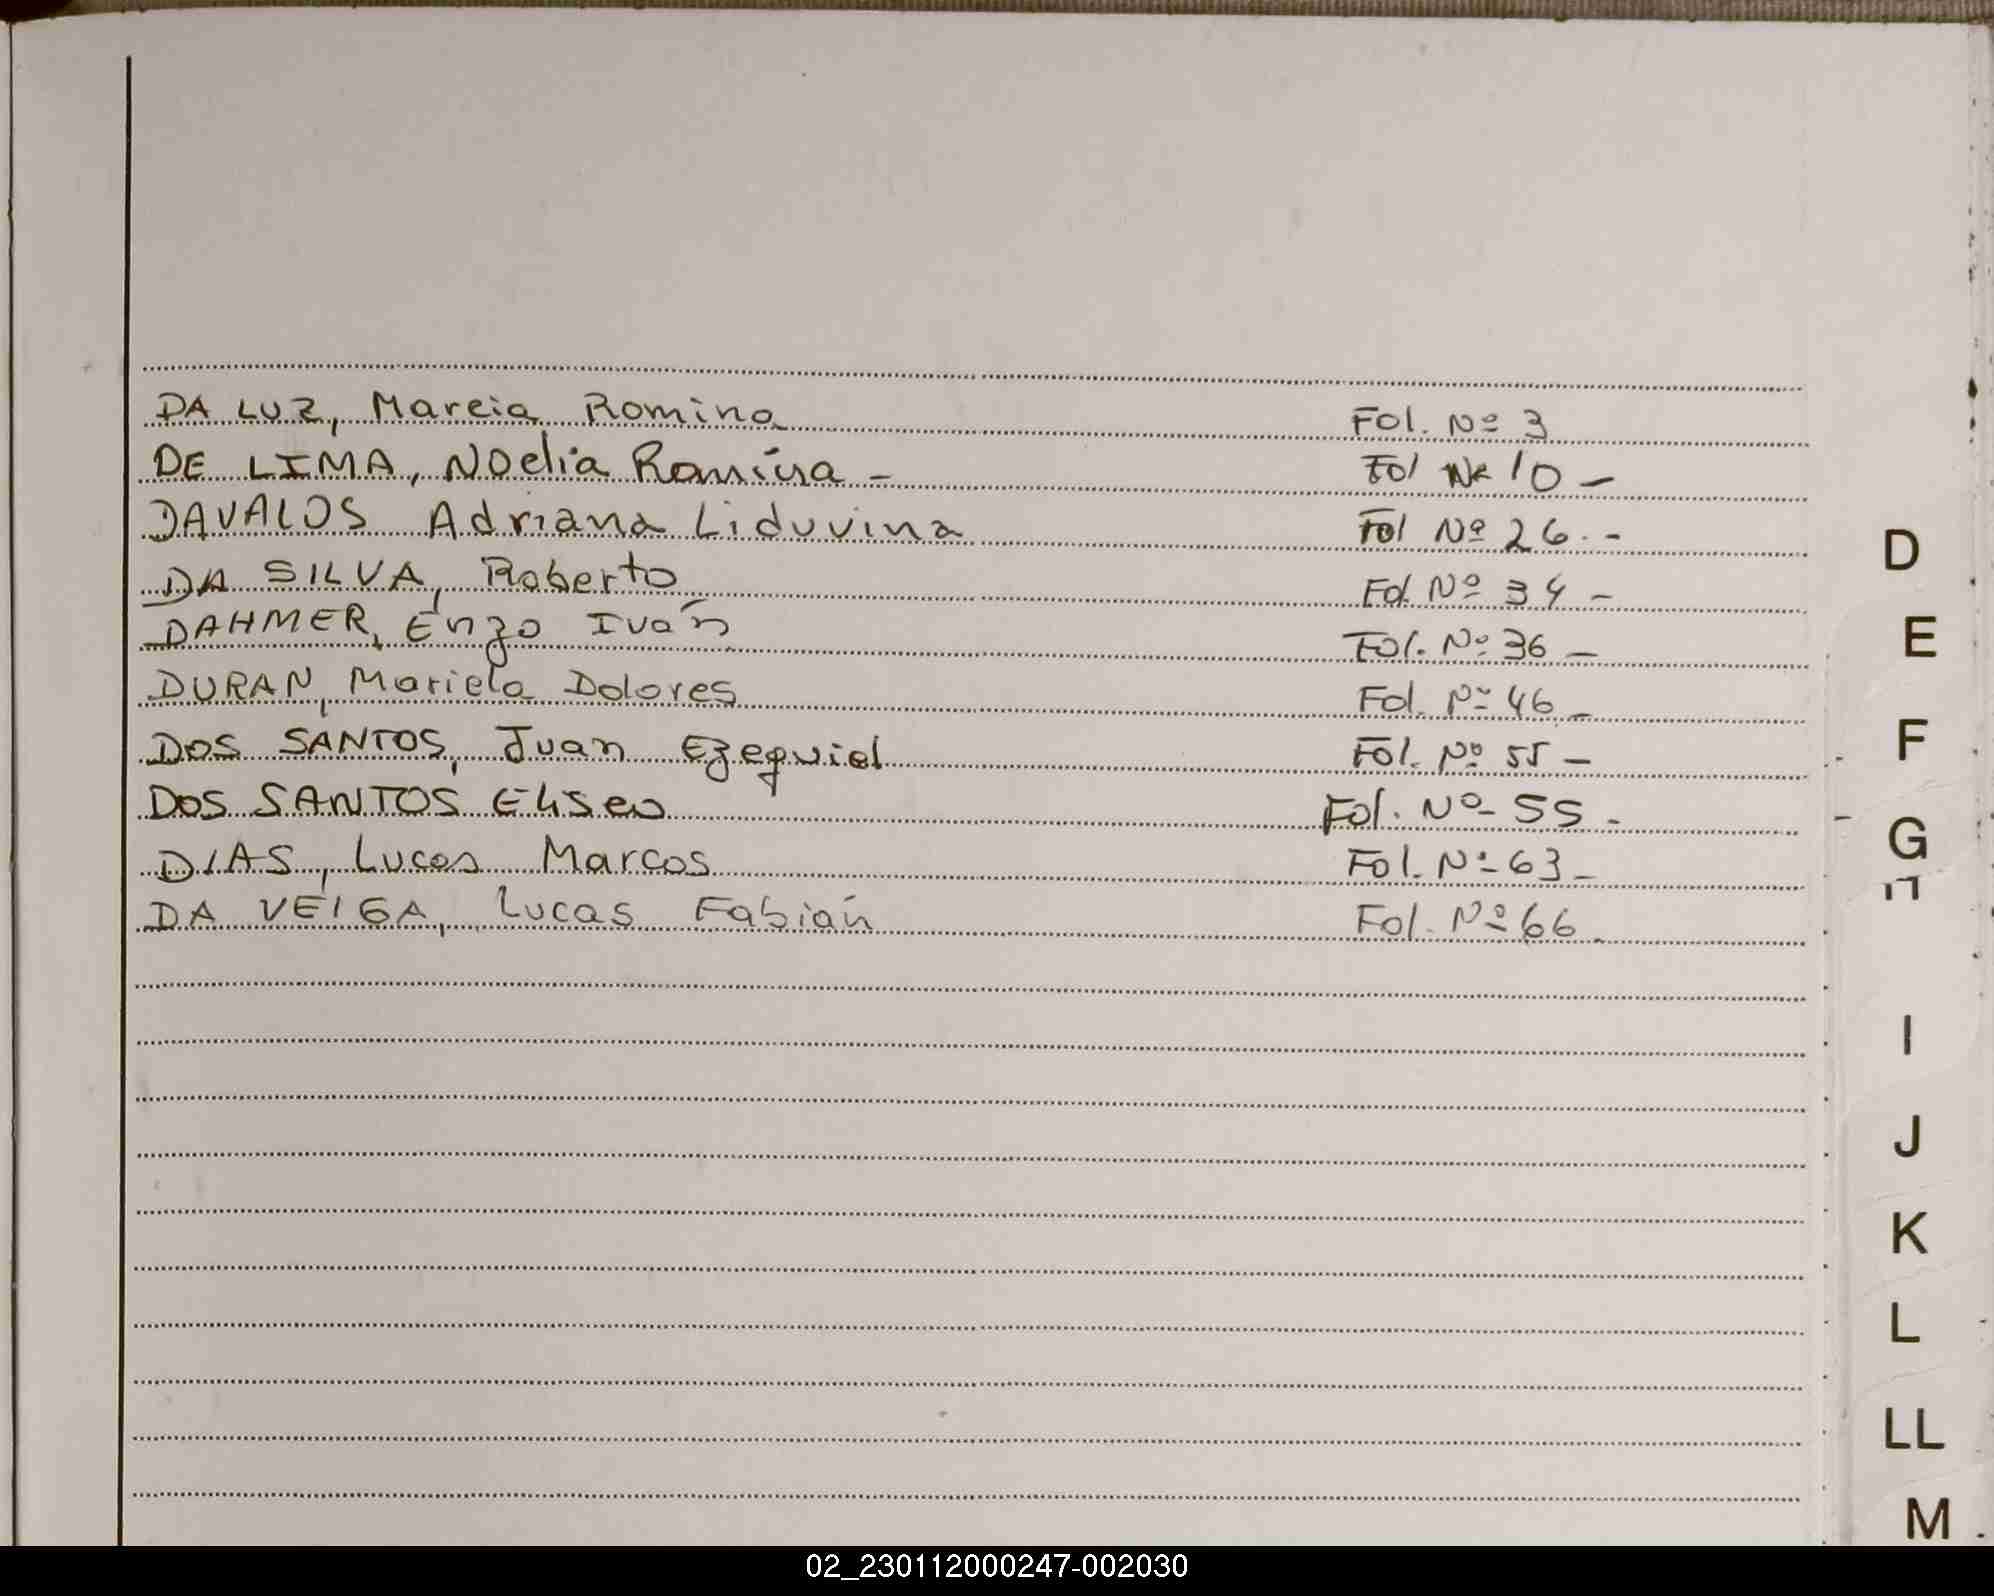 DA LUZ, Marcia Romina Fol. Nº 3
DE LIMA, NOelia Romina - Fol Nº 10 -
DAVALOS Adriana Liduvina Fol Nº 26. -
DA SILVA, Roberto Fol Nº 34 -
DAHMER, Enzo Iván Fol. Nº 36 -
DURAN, Mariela Dolores Fol. Nº 46 -
DOS SANTOS, Juan Ezequiel Fol. Nº 55 -
DOS SANTOS Eliseo Fol. Nº 55 -
DIAS, Lucas Marcos Fol. Nº 63 -
DA VEIGA, Lucas Fabián Fol. Nº 66 -
D
E
F
G
I
J
K
L
LL
M
02_230112000247-002030